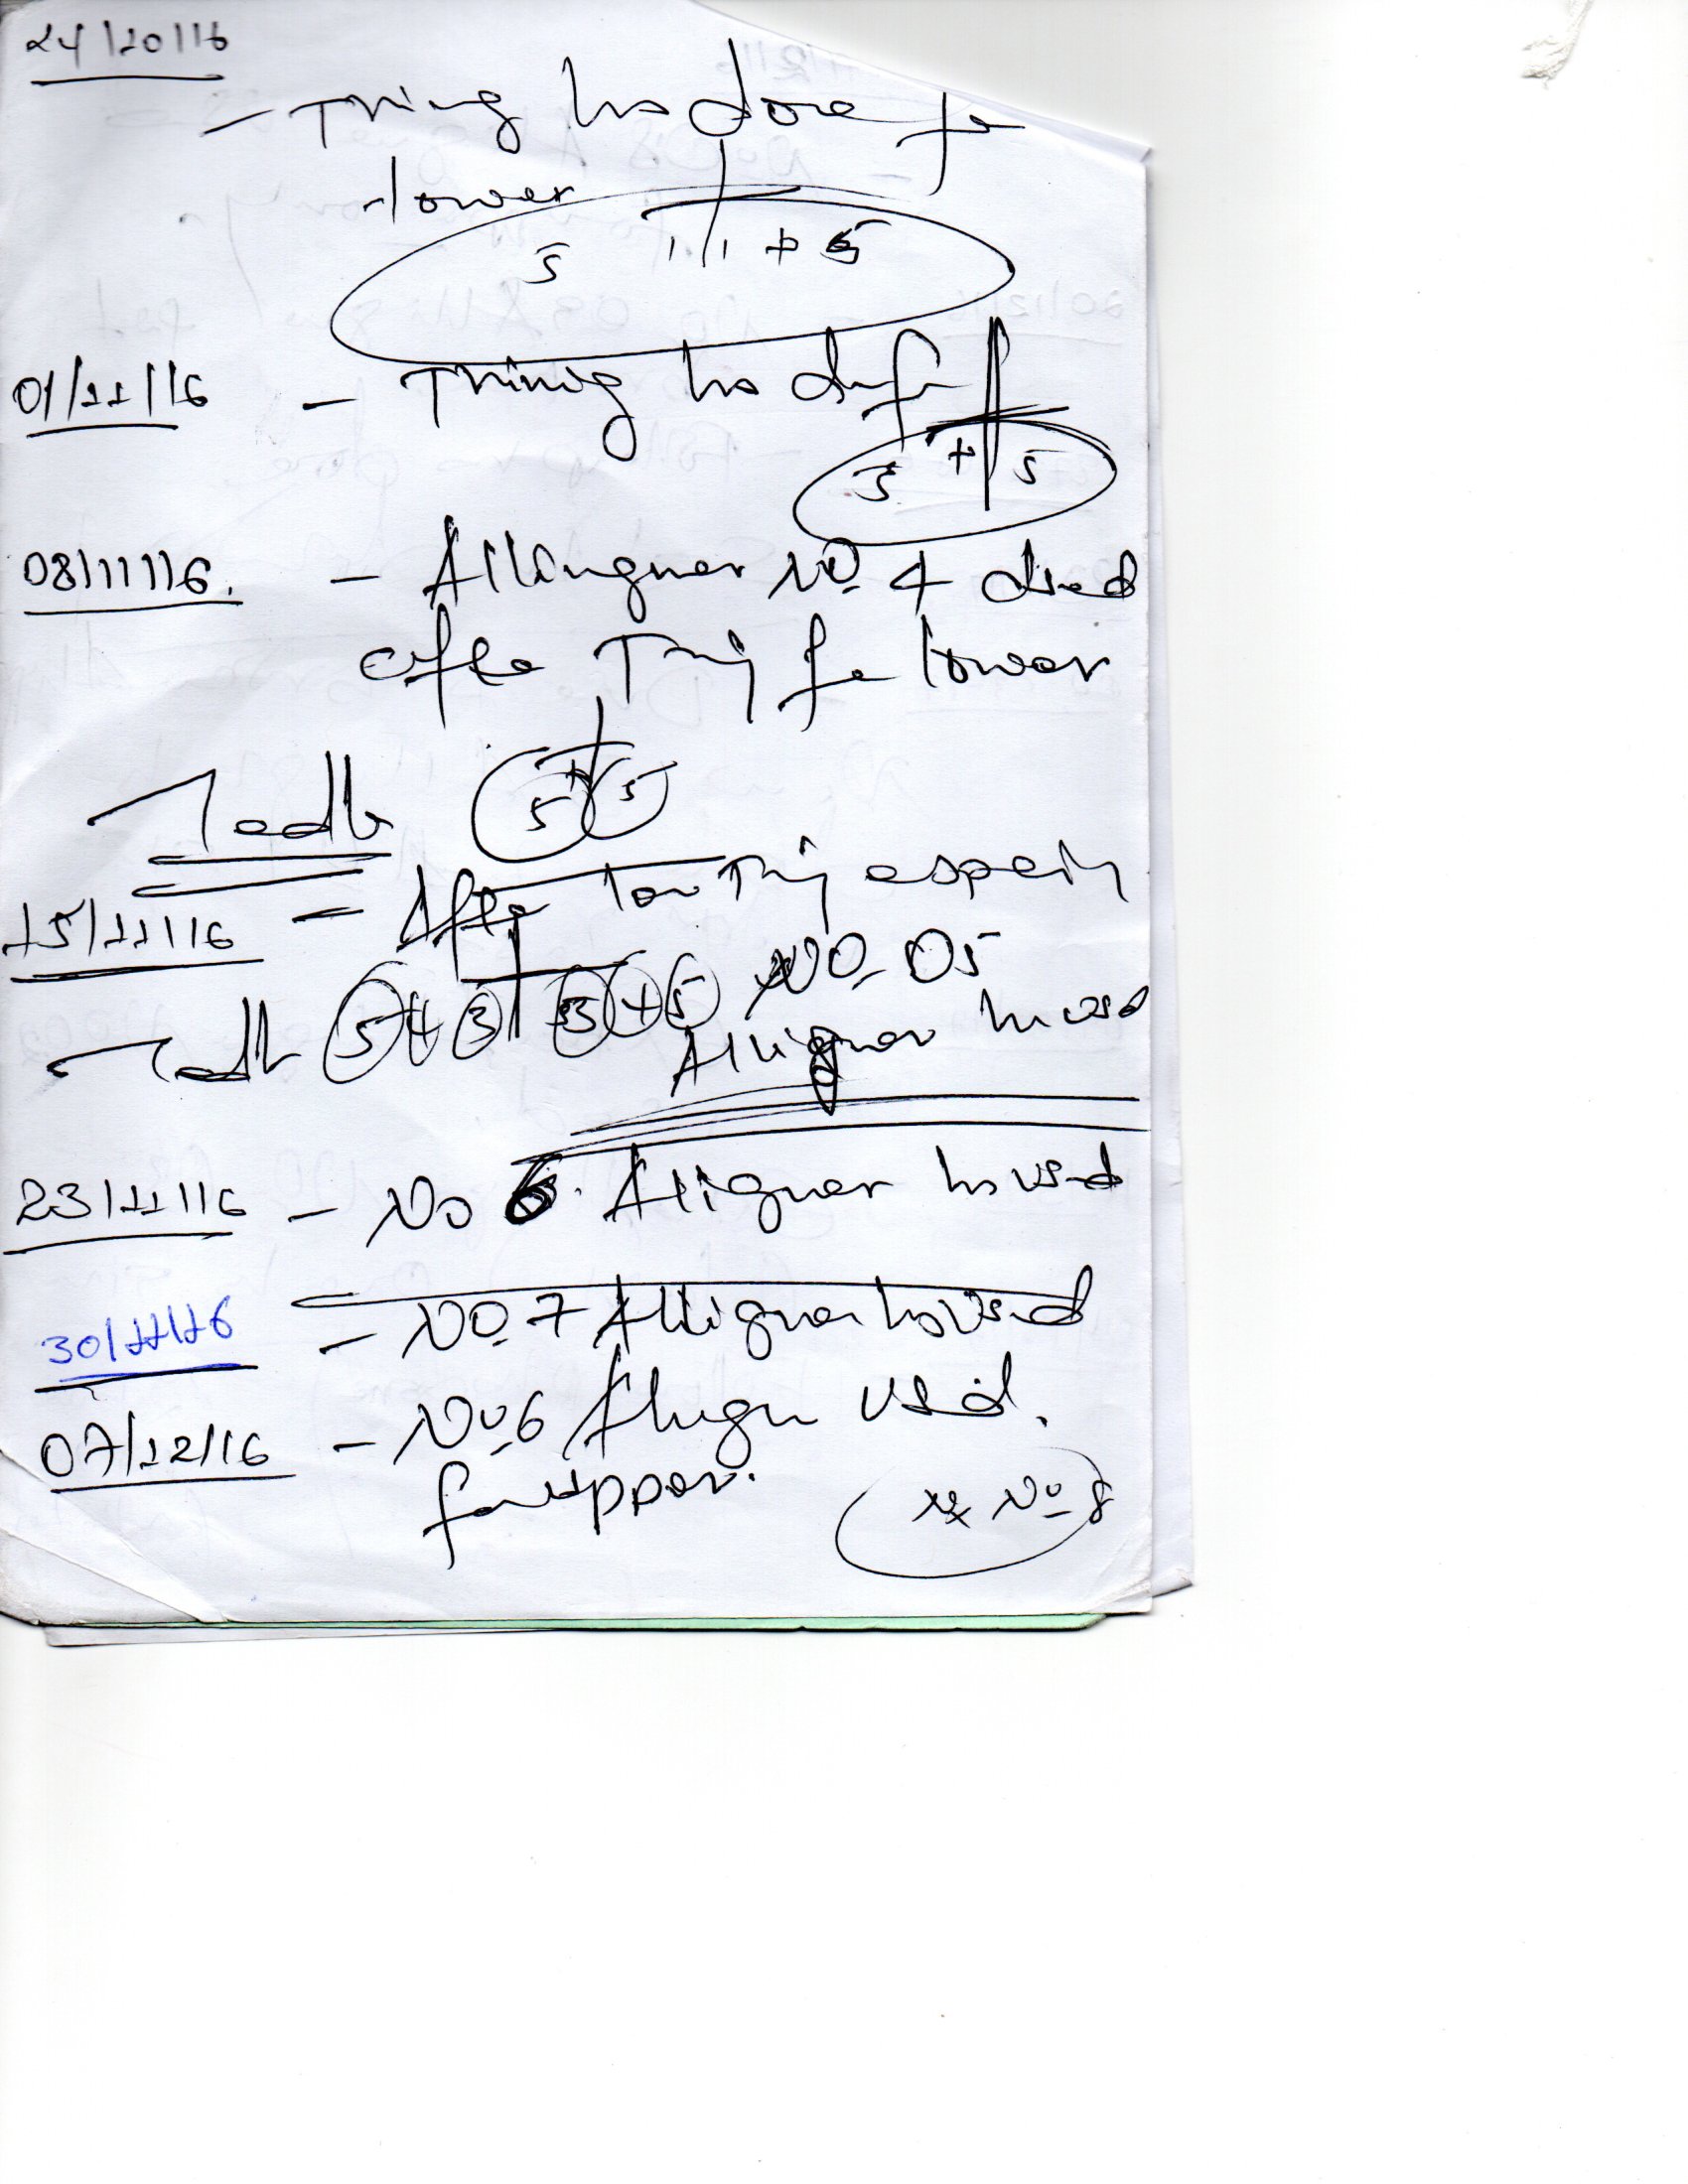 24/10/16
- Triing has done for
lower
5 1 1 + 5
01/11/16 - Trinig has
5 + 5
08/11/16. - Allingner No. 4 used
after Trig for lower
Teeth 5 + 5
15/11/16 - After Trig
No. 05
Teeth 5 4 3 3 + 5
Alligner has used
23/11/16 - No 6. Alligner has used
30/11/16 - No. 7 Alligner has used
07/12/16 - No. 6 used.
for upper.
No 8